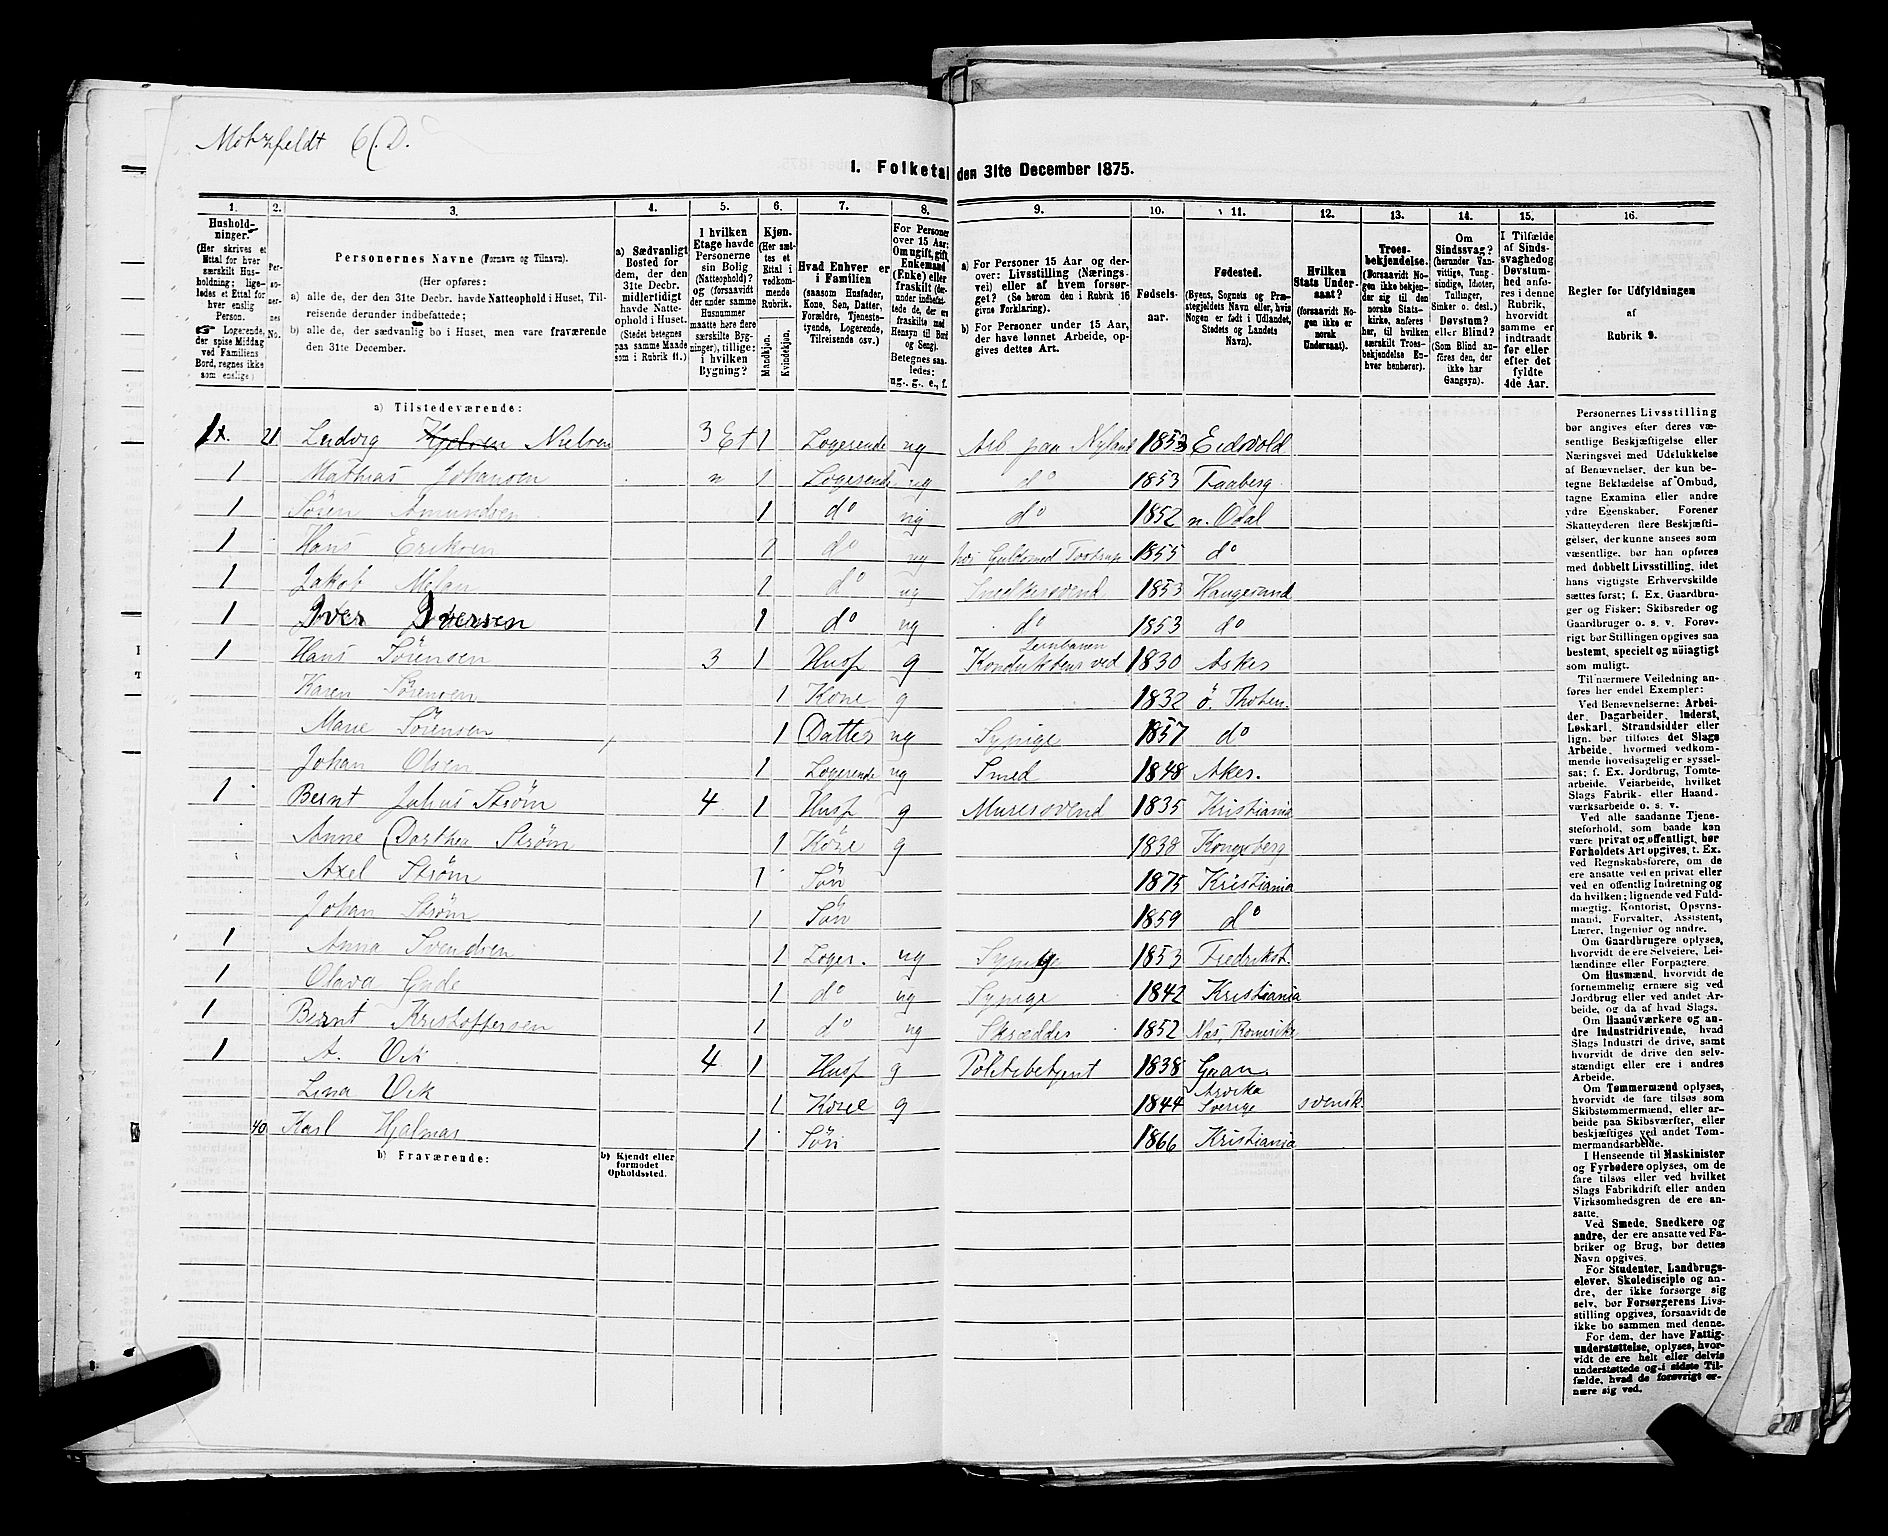 Motzfeldt 6(. D.
1. Folketal den 31te December 1875.
1. 2. 3. 4. 5. 6. 7. 8. 9. 10. 11. 12. 13. 14. 15. 16.
Husholdninger. (Her skrives et Ettal for hver særskilt Husholdning; ligeledes et Ettal for hver enslig Person. Logerende, der spise Middag ved Familiens Bord, regnes ikke som enslige)
Personernes No.
Personernes Navne (Fornavn og Tilnavn).
(Her opføres:
a) alle de, der den 31te Decbr. havde Natteophold i Huset, Tilreisende derunder indbefattede;
b) alle de, der sædvanlig bo i Huset, men vare fraværende den 31te December.
a) Sædvanligt Bosted for dem, der den 31te Decbr. midlertidigt havde Natteophold i Huset. (Stedet betegnes paa samme Maade som i Rubrik 11.)
I hvilken Etage havde Personerne sin Bolig (Natteophold)? og (forsaavidt der under samme Husnummer maatte høre flere særskilte Bygninger), tillige: i hvilken Bygning?
Kjøn. (Her sættes et Ettal i vedkommende Rubrik. Mandkjøn. Kvindekjøn.
Hvad Enhver er i Familien (saasom Husfader, Kone, Søn, Datter, Forældre, Tjenestetyende, Logerende, Tilreisende osv.)
For Personer over 15 Aar: Om ugift, gift, Enkemand (Enke) eller fraskilt (herunder indbefattede de, der ere fraskilte med Hensyn til Bord og Seng). Betegnes saaledes: ug., g., e., f.
a) For Personer 15 Aar og derover: Livsstilling (Næringsvei) eller af hvem forsørget? (Se herom den i Rubrik 16 givne Forklaring).
b) For Personer under 15 Aar, der have lønnet Arbeide, opgives dettes Art.
Fødselsaar.
Fødested. (Byens, Sognets og Præstegjeldets Navn eller, hvis Nogen er født i Udlandet, Stedets og Landets Navn).
Hvilken Stats Undersaat? (forsaavidt Nogen ikke er norsk Undersaat).
Troesbekjendelse. (Forsaavidt Nogen ikke bekjender sig til den norske Statskirke, anføres her, til hvilken særskilt Troesbekjendelse Enhver henhører).
Om Sindssvag? (herunder Vanvittige, Tungsindige, Idioter, Tullinger, Sinker o. desl.) Døvstum? eller Blind? (Som Blind anføres den, der ikke har Gangsyn).
I Tilfælde af Sindssvaghed og Døvstumhed anføres i denne Rubrik, hvorvidt samme er indtraadt før eller efter det fyldte 4de Aar.
Regler for Udfyldningen af Rubrik 9.
a) Tilstedeværende:
1. 21 Ludvig Nielsen 3 Et 1 Logerende ug Arb paa Nyland 1853 Eidsvold
1 Mathias Johansen " 1 Logerende ug do 1853 Faaberg
1 Søren Amundsen 1 do ug do 1852 n. Odal
1 Hans Eriksen 1 do ug hos Guldsmed Tostrup 1855 do
1 Jakob 1 do ug Snedkersvend 1853 Haugesund
1 Iver Iversen 1 do ug do 1853 do
1 Hans Sörensen 3 1 Husf g Konduktör ved Jernbanen 1830 Asker
Karen Sörensen 1 Kone g 1832 ö. Thoten.
Marie Sörensen 1 Datter ug Sypige 1857 do
Johan Olsen 1 Logerende ug Smed 1848 Aker.
1 Bernt Julius Ström 4 1 Husf g Murersvend 1835 Kristiania
Anne Dorthea Ström 1 Kone g 1838 Kongsberg
Axel Ström 1 Sön 1875 Kristiania
Johan Ström 1 Sön 1859 do
1 Anna Svendsen 1 Loger. ug Sypige 1853 Fredrikst.
1 Olava Gude 1 do ug Sypige 1842 Kristiania
1 Bernt Kristoffersen 1 do ug Skrædder 1852 Næs, Romerike
1 A. Vik 4 1 Husf g Politibetjent 1838 Gran.
Lina Vik 1 Kone g 1844 Arvika Sverige svensk.
40 Karl Hjalmar 1 Sön 1866 Kristiania
b) Fraværende:
b) Kjendt eller formodet Opholdssted.
Personernes Livsstilling bør angives efter deres væsentlige Beskjæftigelse eller Næringsvei med Udelukkelse af Benævnelser, der kun betegne Beklædelse af Ombud, tagne Examina eller andre ydre Egenskaber. Forener Skatteyderen flere Beskjæftigelser, der kunne ansees som væsentlige, bør han opføres med dobbelt Livsstilling, idet hans vigtigste Erhvervskilde sættes først; f. Ex. Gaardbruger og Fisker; Skibsreder og Gaardbruger o. s. v. Forøvrigt bør Stillingen opgives saa bestemt, specielt og nøiagtigt som muligt.
Til nærmere Veiledning anføres her endel Exempler:
Ved Benævnelserne: Arbeider, Dagarbeider, Inderst, Løskarl, Strandsidder eller lign. bør tilføies det Slags Arbeide, hvormed vedkommende hovedsagelig er sysselsat; f. Ex. Jordbrug, Tomtearbeide, Veiarbeide, hvilket Slags Fabrik- eller Haandværksarbeide o. s. v.
Ved alle saadanne Tjenesteforhold, som baade kan være privat og offentligt, bør Forholdets Art opgives, t. Ex. ved Regnskabsførere, om de ere ansatte ved en privat eller ved en offentlig Indretning og da hvilken; lignende ved Fuldmægtig, Kontorist, Opsynsmand, Forvalter, Assistent, Lærer, Ingeniør og andre.
Om Gaardbrugere oplyses, hvorvidt de ere Selveiere, Leilændinge eller Forpagtere.
Om Husmænd, hvorvidt de fornemmelig ernære sig ved Jordbrug eller ved andet Arbeide, og da af hvad Slags.
Om Haandværkere og andre Industridrivende, hvad Slags Industri de drive, samt hvorvidt de drive den selvstændigt eller ere i andres Arbeide.
Om Tømmermænd oplyses, hvorvidt de fare tilsøs som Skibstømmermænd, eller arbeide paa Skibsværfter, eller beskjæftiges ved andet Tømmermandsarbeide.
I Henseende til Maskinister og Fyrbødere oplyses, om de fare tilsøs eller ved hvilket Slags Fabrikdrift eller anden Virksomhedsgren de ere ansatte.
Ved Smede, Snedkere og andre, der ere ansatte ved Fabriker og Brug, bør dettes Navn opgives.
For Studenter, Landbrugselever, Skoledisciple og andre, der ikke forsørge sig selv, bør Forsørgerens Livsstilling opgives, forsaavidt de ikke bo sammen med denne.
For dem, der have Fattigunderstøttelse, oplyses, hvorvidt de ere helt eller delvis understøttede og i sidste Tilfælde, hvad de forøvrigt ernære sig ved.